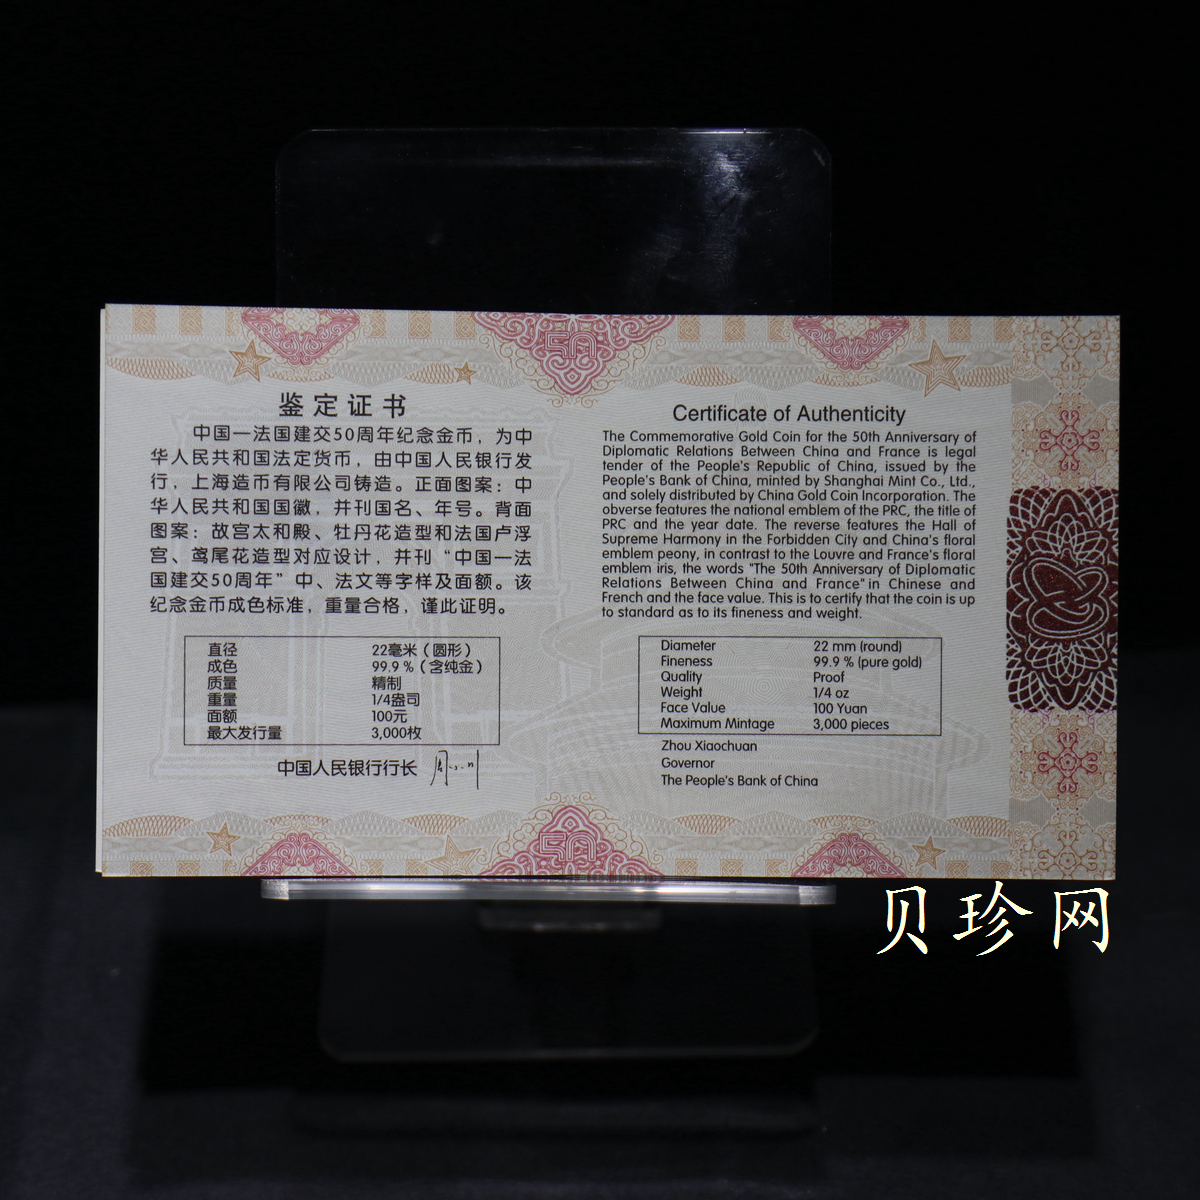 鉴定证书
中国一法国建交50周年纪念金币，为中
华人民共和国法定货币，由中国人民银行发
行，上海造币有限公司铸造。正面图案：中
华人民共和国国徽，并刊国名、年号。背面
图案：故宫太和殿、牡丹花造型和法国卢浮
宫、鸢尾花造型对应设计，并刊“中国一法
国建交50周年”中、法文等字样及面额。该
纪念金币成色标准，重量合格，谨此证明。
直径 22毫米（圆形）
成色 99.9％（含纯金）
质量 精制
重量 1/4盎司
面额 100元
最大发行量 3,000枚
中国人民银行行长
Certificate of Authenticity
The Commemorative Gold Coin for the 50th Anniversary of
Diplomatic Relations Between China and France is legal
tender of the People's Republic of China, issued by the
People's Bank of China, minted by Shanghai Mint Co., Ltd.,
and solely distributed by China Gold Coin Incorporation. The
obverse features the national emblem of the PRC, the title of
PRC and the year date. The reverse features the Hall of
Supreme Harmony in the Forbidden City and China's floral
emblem peony, in contrast to the Louvre and France's floral
emblem iris, the words "The 50th Anniversary of Diplomatic
Relations Between China and France" in Chinese and
French and the face value. This is to certify that the coin is up
to standard as to its fineness and weight.
Diameter 22 mm (round)
Fineness 99.9 % (pure gold)
Quality Proof
Weight 1/4 oz
Face Value 100 Yuan
Maximum Mintage 3,000 pieces
Zhou Xiaochuan
Governor
The People's Bank of China
贝珍网